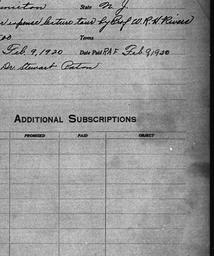 State N. J.
r expense lecture tour by Prof W. R. H. Rivers
00 Terms
Feb. 9, 1920 Date Paid RAF Feb 9, 1920
Dr. Stewart Paton
ADDITIONAL SUBSCRIPTIONS
PROMISED PAID OBJECT